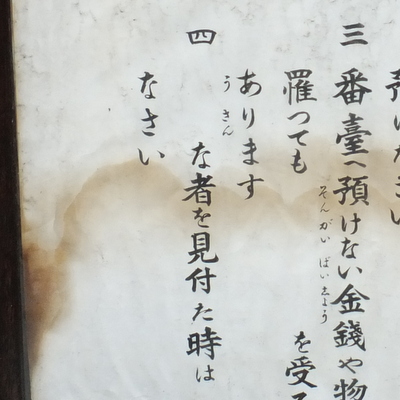 三 番臺へ預けない金錢や物
そんがいばいしよう
罹つても を受
あります
うさん
四 な者を見付た時は
なさい